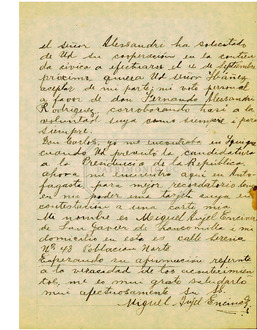 el Señor Alessandri ha solicitado
de Ud su cooperación en la contien
da cívica a efectuarse el 4 de Septiembre
próximo, quiera Ud Señor Ibáñez
aceptar de mi parte, mi voto personal
a favor de don Fernando Alessandri
Rodríguez, corroborando hacia a la
voluntad suya como siempre i para
siempre.
Don Carlos, yo me encontraba en Iquique
cuando Ud presentó la candidatura
a la Presidencia de la República,
ahora me encuentro aquí en Anto-
fagasta, para mejor recordatorio tengo
en mi poder una tarjeta suya en
contestación a una carta mía
Mi nombre es Miguel Angel Encina
de San Javier de Loncomilla i mi
domicilio en esta es calle Sirena
Nº 43 Población Norte
Esperando su afirmación referente
a la veracidad de los acontecimien
tos, me es mui grato saludarlo
mui afectuosamente su SS.
Miguel Angel Encina